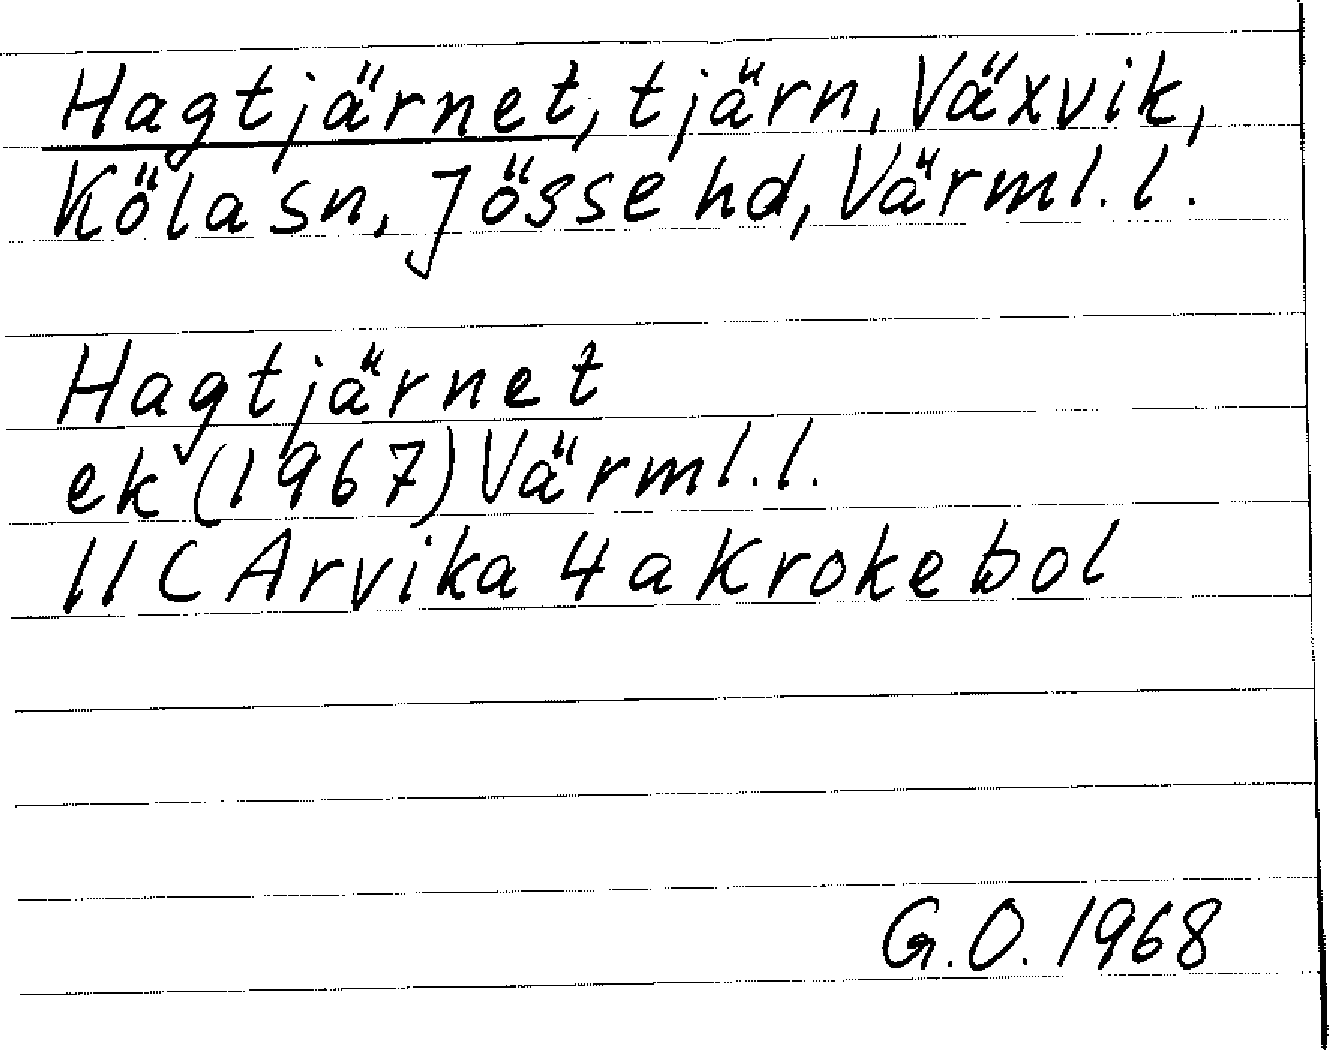 Hagtjärnet, tjärn, Växvik,
Köla sn, Jösse hd, Värml. l.
Hagtjärnet
ek (1967) Värml. l.
11C Arvika 4a Krokebol
G.O. 1968